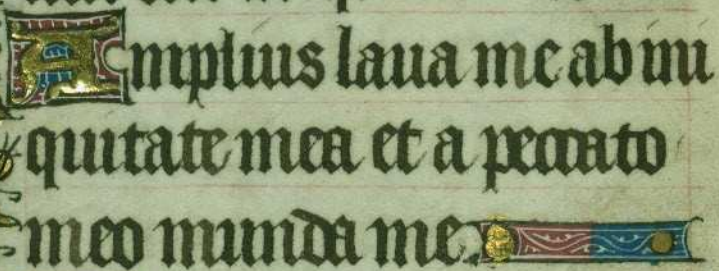 Amplius laua me ab ini
quitate mea et a peccato
meo munda me.